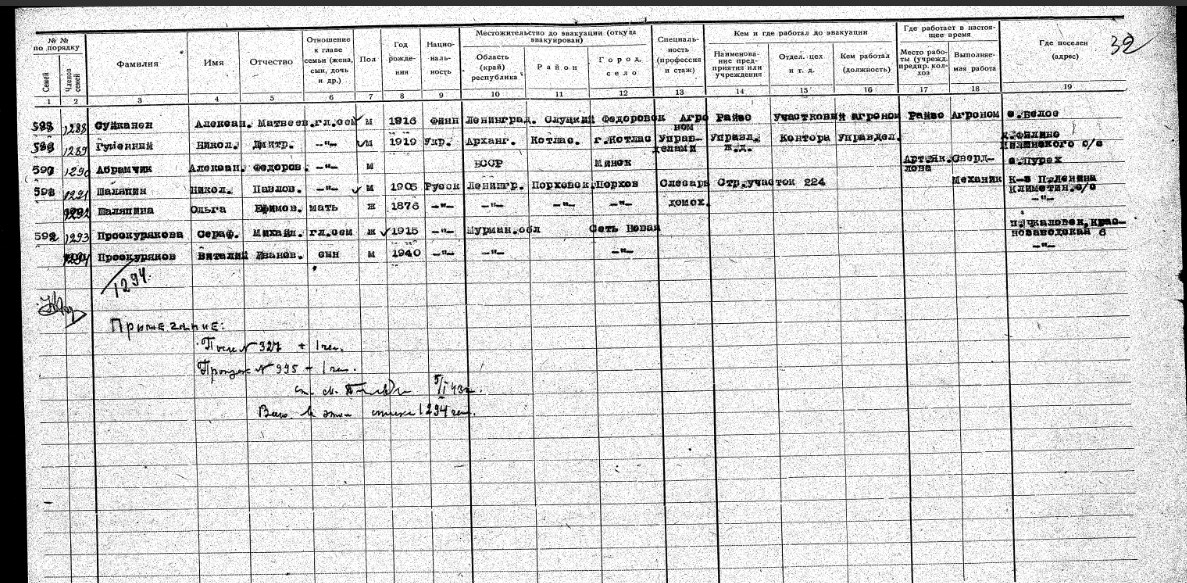 39
№ № по порядку
Семей
Членов семей
Фамилия
Имя
Отчество
Отношение к главе семьи (жена, сын, дочь и др.)
Пол
Год рождения
Национальность
Местожительство до эвакуации (откуда эвакуирован)
Область (край) республика
Район
Город, село
Специальность (профессия и стаж)
Кем и где работал до эвакуации
Наименование предприятия или учреждения
Отдел, цех и т. д.
Кем работал (должность)
Где работает в настоящее время
Место работы (учрежд. предпр. колхоз
Выполняемая работа
Где поселен (адрес)
1 2 3 4 5 6 7 8 9 10 11 12 13 14 15 16 17 18 19
1288 Суйканен Алексан. Матвеев. гл.сем м 1916 Финн Ленинград. Слуцкий Федоровск Агроном Райзо Участковый агроном Райзо Агроном с.Белое
1289 Гуменный Никол. Дмитр. -"- м 1919 Укр. Арханг. Котлас. г.Котлас Управделами Управл. ж.д. Контора Управдел.
1290 Абрамчик Алексан. Федоров. -"- м БССР Минск с.Пурех
1291 Шаляпин Никол. Павлов. -"- м 1905 Русск Ленингр. Порховск. Порхов Слесарь Стр.участок 224 Механик К-з П.Ленина
1292 Шаляпина Ольга Ефимов. мать ж 1876 -"- -"- -"- домох. -"-
1293 Проскурякова Сераф. Михайл. гл.сем ж 1915 -"- Мурман.обл п.Чкаловск, Краснозаводская 6
1294 Проскуряков Виталий Иванов. сын м 1940 -"- -"- -"- -"-
1294
Примечание:
№ 327 + 1 чел.
№ 995 + 1 чел.
Всего в этом списке 1294 чел.